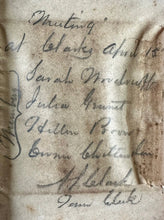 Meeting
at Clarks April 15
Sarah Woodruff
Julia Grant
Hellen Brown
Chittenden
Clark
Town Clerk